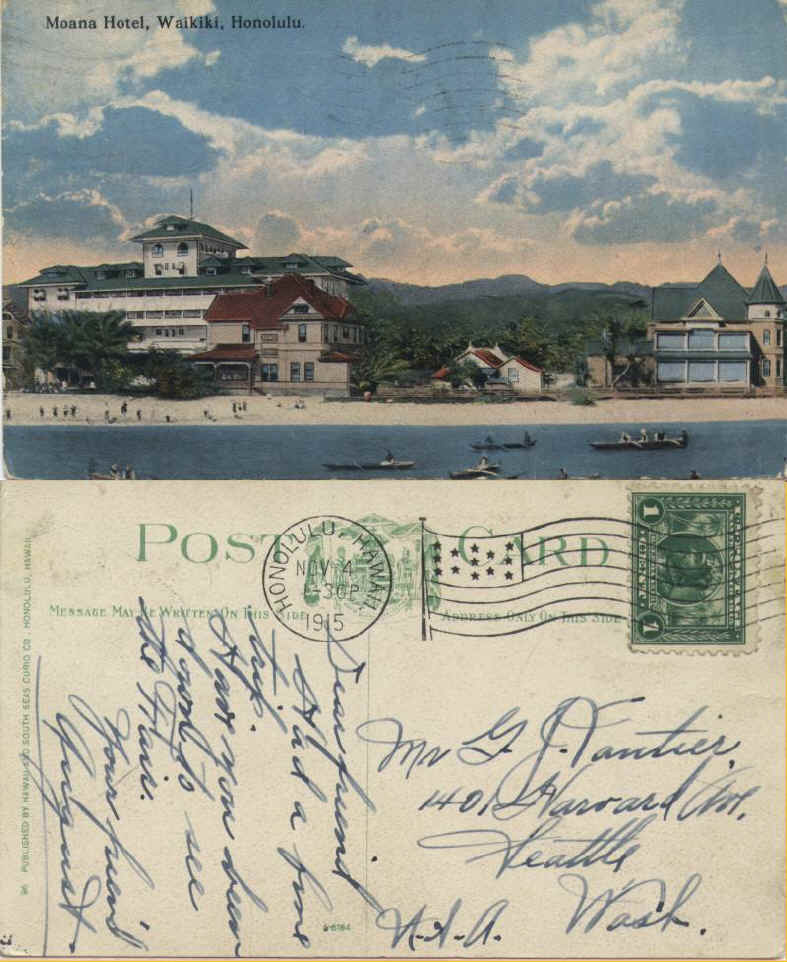 Moana Hotel, Waikiki, Honolulu.
POST CARD
HONOLULU, HAWAII.
NOV 4
30P
1915
1
1
MESSAGE MAY BE WRITTEN ON THIS SIDE
ADDRESS ONLY ON THIS SIDE
PUBLISHED BY HAWAII AND SOUTH SEAS CURIO CO., HONOLULU, HAWAII
Dear friend.
Had a fine
trip.
Have you been
to see
the Fair.
Your friend
August.
Mr G. J. Vantier,
1401 Harvard Ave.
Seattle
Wash.
U.S.A.